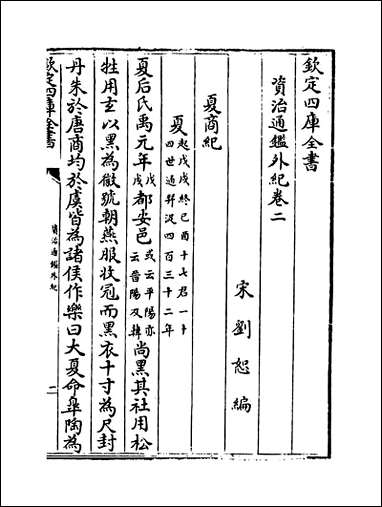 欽定四庫全書
資治通鑑外紀卷二
宋 劉恕 編
夏商紀
夏 起戊戌終己酉十七君一十四世通羿浞四百三十二年
夏后氏禹元年戊戌都安邑或云平陽亦云晉陽及韓尚黑其社用松
牲用玄以黑為徽號朝燕服收冠而黑衣十寸為尺封
丹朱於唐商均於虞皆為諸侯作樂曰大夏命臯陶為
欽定四庫全書
資治通鑑外紀